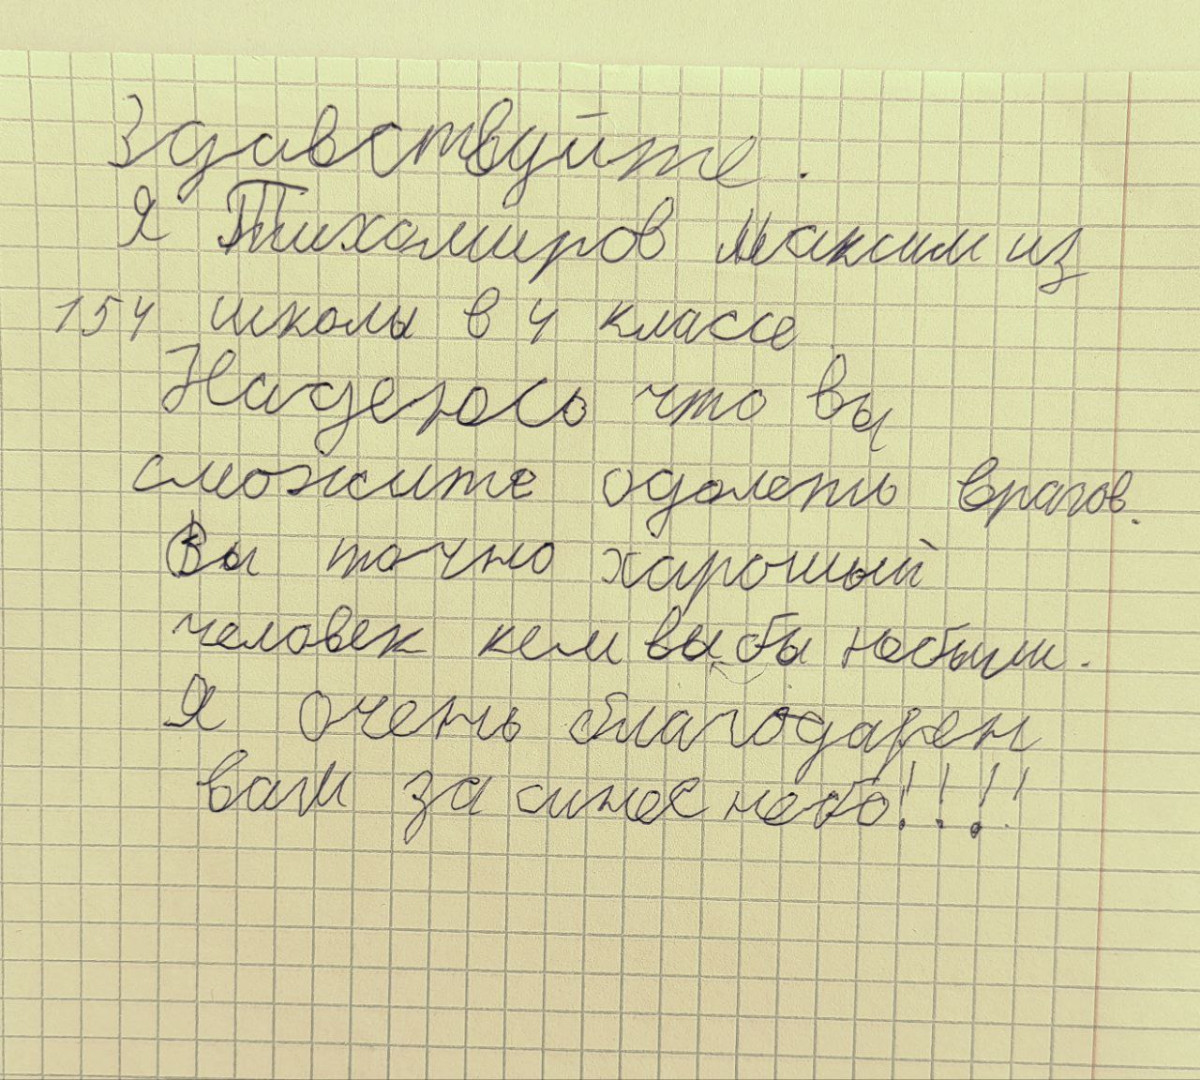 Здавствуйте.
Я Тихомиров Максим из
154 школы в 4 классе
Надеюсь что вы
сможите одолеть врагов.
Вы точно харошый
человек кем вы бы небыли.
Я очень благодарен
вам за синее небо!!!!